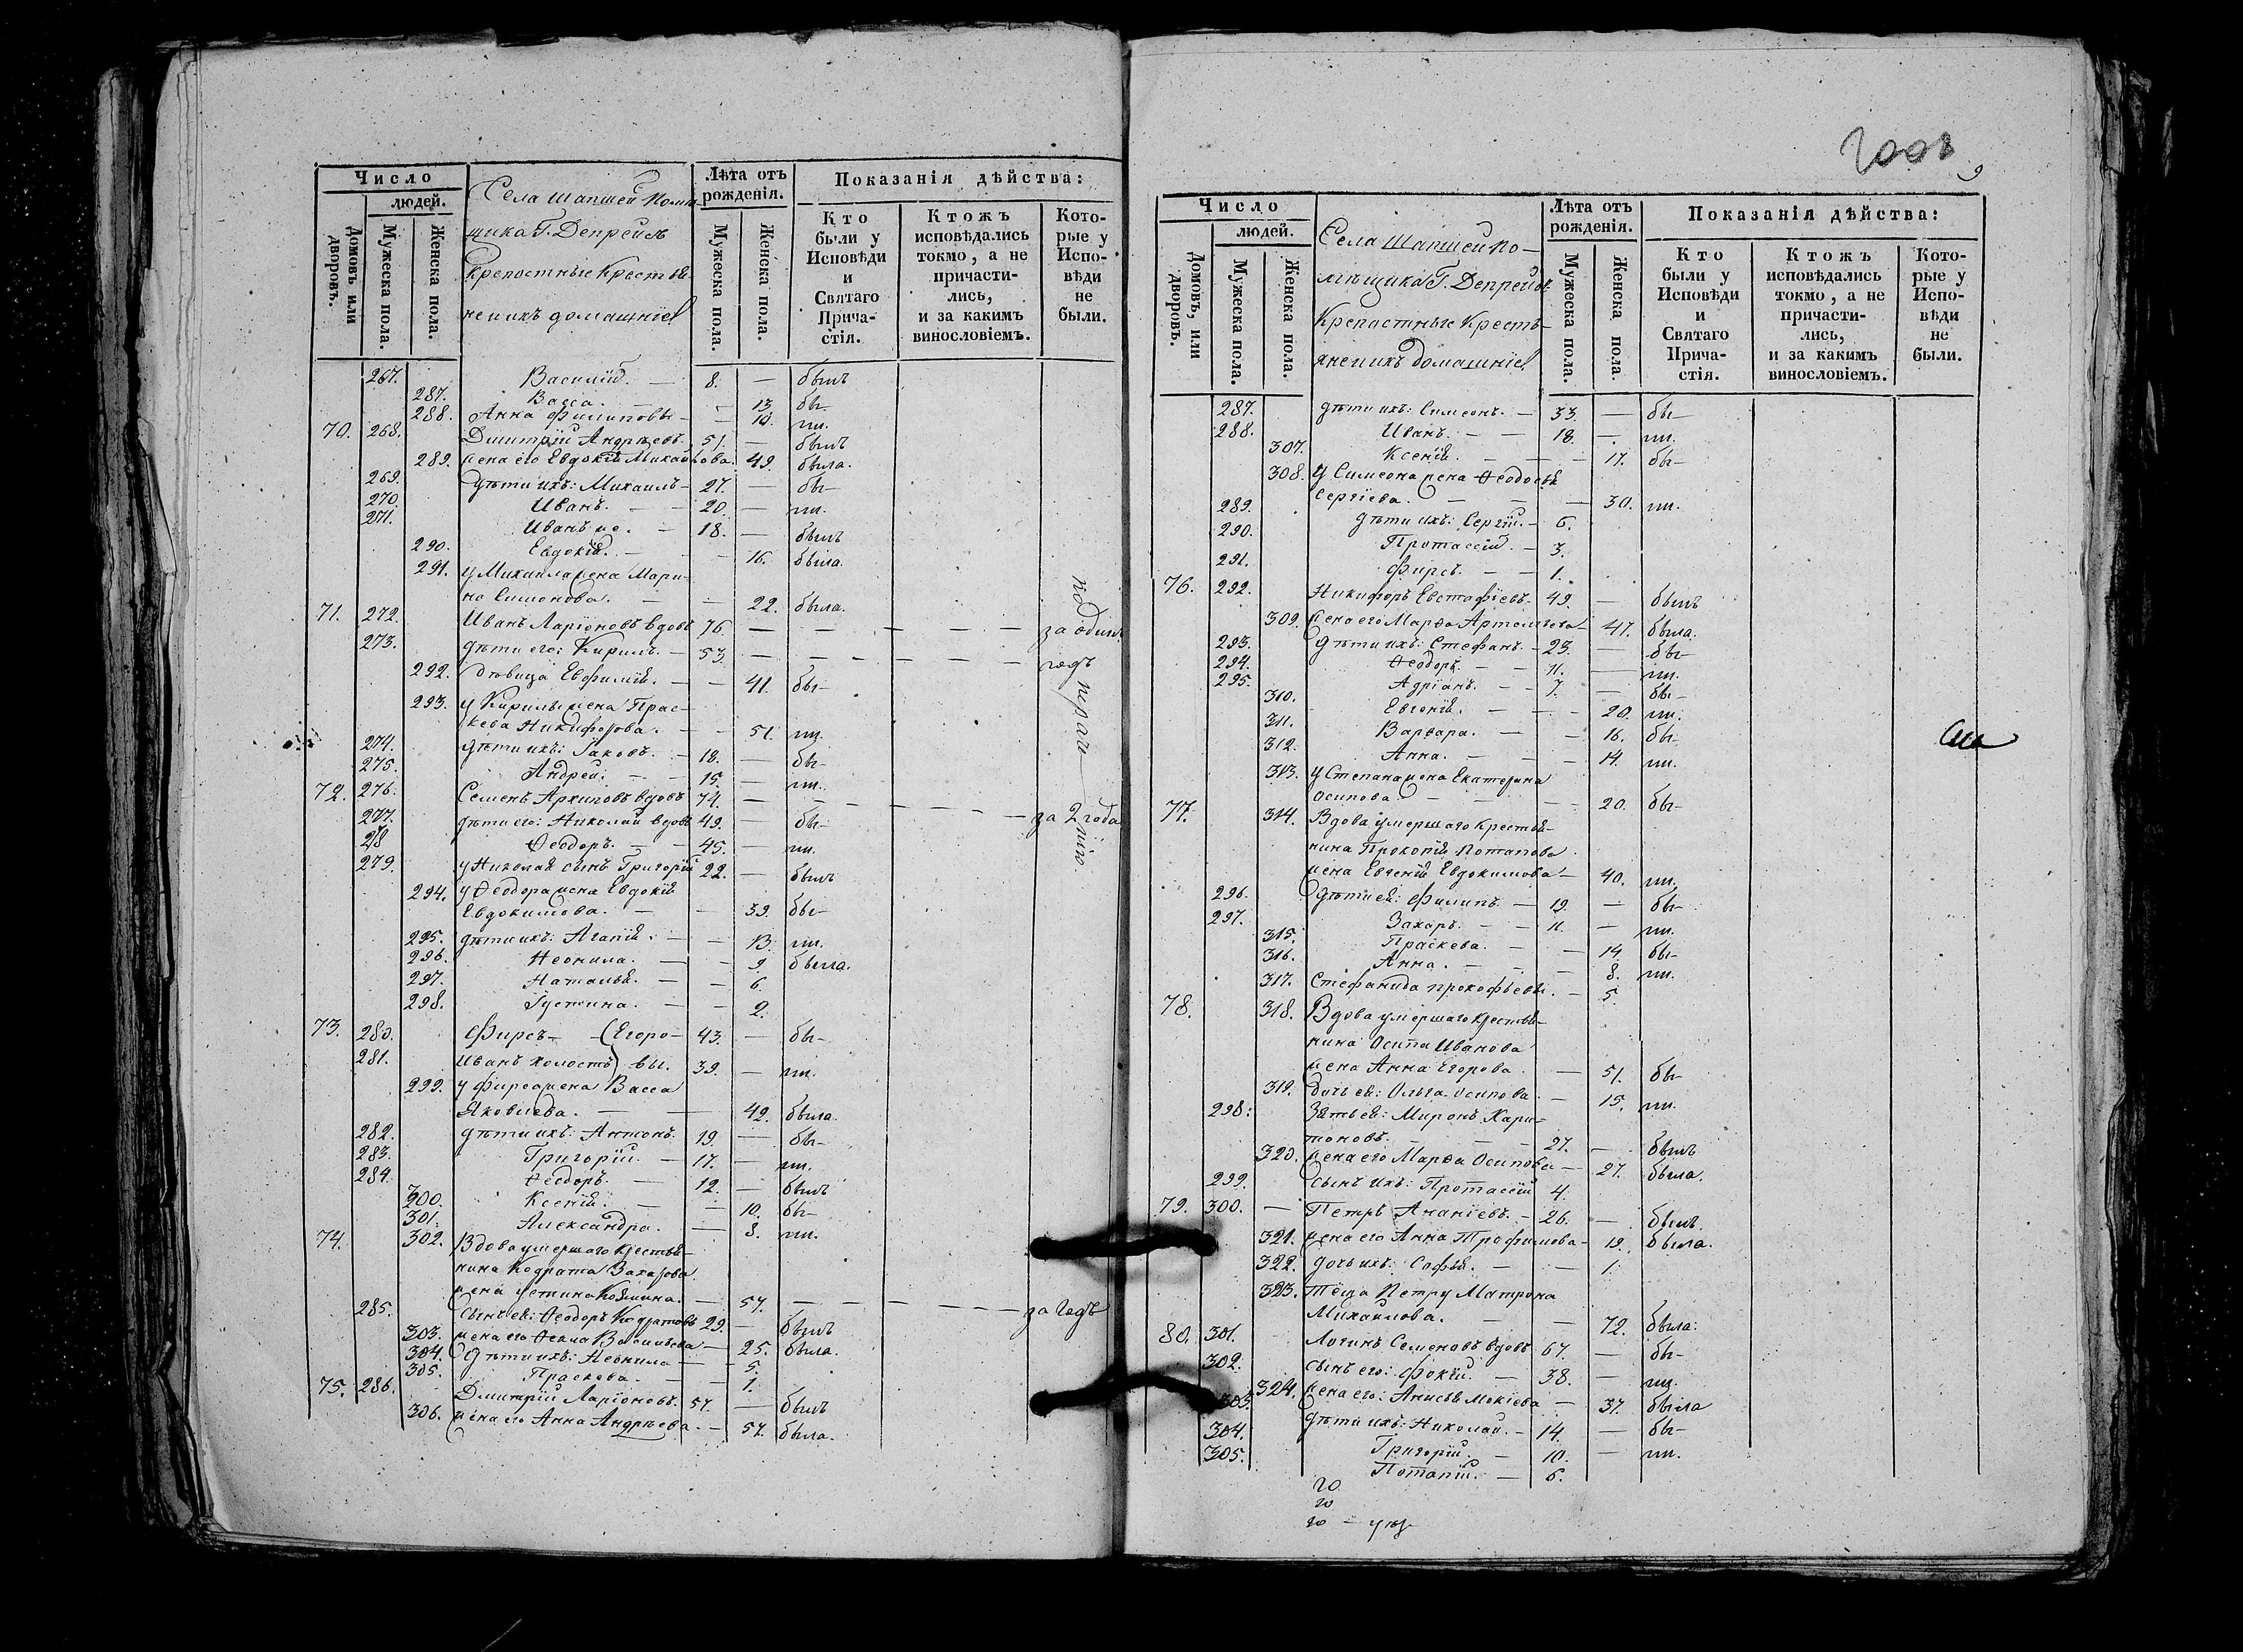 Число
людей.
Домовъ или дворовъ.
Мужеска пола.
Женска пола.
Села Шапшей Помѣ-
щика Г. Депрейсъ
Крепостные Крестья-
не и ихъ домашніе
Лѣта отъ рожденія.
Мужеска пола.
Женска пола.
Показанія дѣйства:
Кто были у Исповѣди и Святаго Прича-стія.
Ктожъ исповѣдались токмо, а не причасти-лись, и за какимъ винословіемъ.
Кото-рые у Испо-вѣди не были.
267. Василій. — 8. — былъ
287. Васса. — 13 бы-
288. Анна Филиповы — 10. ли.
70. 268. Дмитрій Андреевъ. 51. — былъ
289. жена его Евдокія Михайлова. 49. была.
269. дѣти ихъ: Михаилъ — 27. — бы-
270. Иванъ. — 20. — ли.
271. Иванъ же. — 18. — былъ
290. Евдокія. — 16. была.
291. у Михаила жена Мари-
на Симонова. — 22. была.
71. 272. Иванъ Ларіоновъ вдовъ 76. — за одинъ
273. дѣти его: Кирилъ. — 53. — годъ
292. дѣвица Евфимія. — 41. бы-
293. у Кирилы жена Прас-
кева Никифорова. — 51. ли.
274. дѣти ихъ: Іаковъ. — 18. — бы-
275. Андрей. — 15. — ли.
72. 276. Семенъ Архиповъ вдовъ 74. — за 2 года
277. дѣти его: Николай вдовъ 49. — бы-
278 Ѳеодоръ. — 45. — ли.
279. у Николая сынъ Григорій 22. — былъ
294. у Ѳеодора жена Евдокія
Евдокимова. — 39. бы-
295. дѣти ихъ: Агапія. — 13. ли.
296. Неонила. — 9. была.
297. Наталья. — 6.
298. Іустина. — 2.
73. 280. Фирсъ — (Егоро- 43. — бы-
281. Иванъ холостъ) вы. 39. — ли.
299. у Фирса жена Васса
Яковлева. — 42. была.
282. дѣти ихъ: Антонъ. 19. — бы-
283. Григорій. — 17. — ли.
284. Ѳеодоръ. — 12. — былъ
300. Ксенія. — 10. бы-
301. Александра. — 8. ли.
74. 302. Вдова умершаго крестья-
нина Кодрата Захарова
жена Устина Козмина. — 57. — за годъ
285. сынъ ея: Ѳеодоръ Кодратовъ 29. — былъ
303. жена его Ѳекла Васильева — 25. была.
304. дѣти ихъ: Неонила — 5.
305. Праскева. — 1.
75. 286. Дмитрій Ларіоновъ. 57. — былъ
306. жена его Анна Андрѣева. — 57. была.
9
Число
людей.
Домовъ, или дворовъ.
Мужеска пола.
Женска пола.
Села Шапшей По-
мѣщика Г. Депрейсъ
Крепостные Кресть-
яне и ихъ домашніе
Лѣта отъ рожденія.
Мужеска пола.
Женска пола.
Показанія дѣйства:
Кто были у Исповѣди и Святаго Прича-стія.
Ктожъ исповѣдались токмо, а не причасти-лись, и за какимъ винословіемъ.
Кото-рые у Испо-вѣди не были.
287. дѣти ихъ: Симеонъ. — 33. — бы-
288. Иванъ. — 18. — ли.
307. Ксенія. — 17. бы-
308. У Симеона жена Ѳеодосья
Сергіева. — 30. ли.
289. дѣти ихъ: Сергій. — 6.
290. Протассій. — 3.
291. Фирсъ. — 1.
76. 292. Никифоръ Евстафіевъ. 49. — былъ
309. жена его Марѳа Артемьева — 47. была.
293. дѣти ихъ: Стефанъ. — 23. — бы-
294. Ѳеодоръ. — 11. — ли.
295. Адріанъ. — 7. — бы-
310. Евгенія. — 20. ли.
311. Варвара. — 16. бы-
312. Анна. — 14. ли.
313. у Степана жена Екатерина
Осипова. — 20. бы-
77. 314. Вдова умершаго крестья-
нина Прокопія Потапова
жена Евгенія Евдокимова — 40. ли.
296. дѣти ея: Филипъ. — 19. — бы-
297. Захаръ. — 11. — ли.
315. Праскева. — 14 бы-
316. Анна. — 8. ли.
317. Стефанида Прокофьевы. — 5.
78. 318. Вдова умершаго крестья-
нина Осипа Иванова
жена Анна Егорова. — 51. бы-
319. дочь ея: Ольга Осипова — 15. ли.
298. Зять ея: Миронъ Хари-
тоновъ. — 27. — былъ
320. жена его Марѳа Осипова — 27. была.
299. сынъ ихъ: Протассій 4.
79. 300. — Петръ Ананіевъ. — 26. — былъ.
321. жена его Анна Трофимова — 19. была.
322. дочь ихъ: Софья. — 1.
323. Тёща Петру Матрона
Михаилова. — 72. была.
80. 301. Логинъ Семеновъ вдовъ 67. — бы-
302. сынъ его: Фокій. — 38. — ли.
324. жена его: Анисья Мокіева — 37. была
303. дѣти ихъ: Николай. — 14. — бы-
304. Григорій. — 10. — ли.
305. Потапій. — 6.